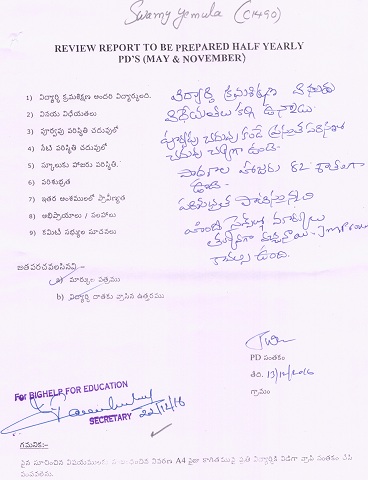 Swamy Yemula (C1490)
REVIEW REPORT TO BE PREPARED HALF YEARLY
PD'S (MAY & NOVEMBER)
1) విద్యార్థి క్రమశిక్షణ అందరి విద్యార్థులది.
2) వినయ విధేయతలు
3) పూర్వపు పరిస్థితి చదువులో
4) నేటి పరిస్థితి చదువులో
5) స్కూలుకు హాజరు పరిస్థితి.
6) పరిశుభ్రత
7) ఇతర అంశములలో ప్రావీణ్యత
8) అభిప్రాయాలు / సలహాలు
9) కమిటీ సభ్యుల సూచనలు
విద్యార్థి క్రమశిక్షణ వినయ
విధేయతలు కలిగి ఉన్నాడు.
పూర్వపు చదువు కంటే ప్రస్తుత
చదువు చక్కగా ఉంది.
పాఠశాల హాజరు 82 శాతంగా
ఉంది.
పరిశుభ్రత పాటిస్తున్నాడు
హిందీ సైన్స్ మార్కులు
తక్కువగా వచ్చినాయి. Improve
కావల్సి ఉంది.
జతపరచవలసినవి:-
a) మార్కుల పత్రము
b) విద్యార్థి దాతకు వ్రాసిన ఉత్తరము
PD సంతకం
తేది. 13/12/2016
గ్రామం
For BIGHELP FOR EDUCATION
SECRETARY 22/12/16
గమనిక:-
పైన సూచించిన విషయములకు వివరణ A4 సైజు కాగితముపై ప్రతి విద్యార్థికి విడిగా వ్రాసి సంతకం చేసి
పంపవలెను.